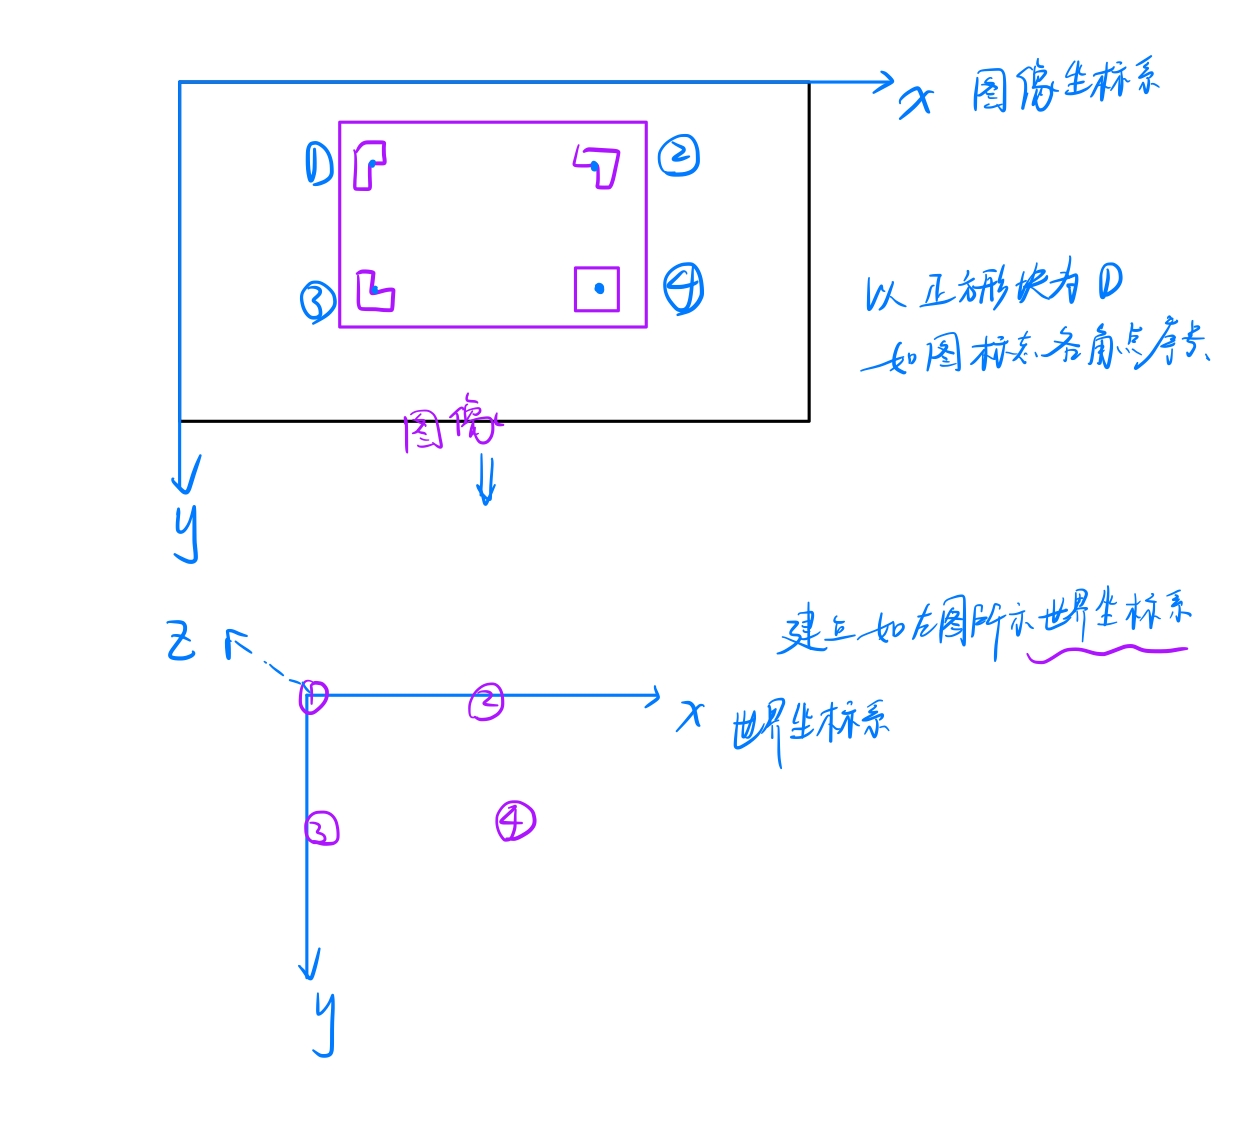 x 图像坐标系
① ②
③ ④
以正方形块为①
如图标志各角点序号、
图像
y
建立如左图所示世界坐标系
z
① ② x 世界坐标系
③ ④
y